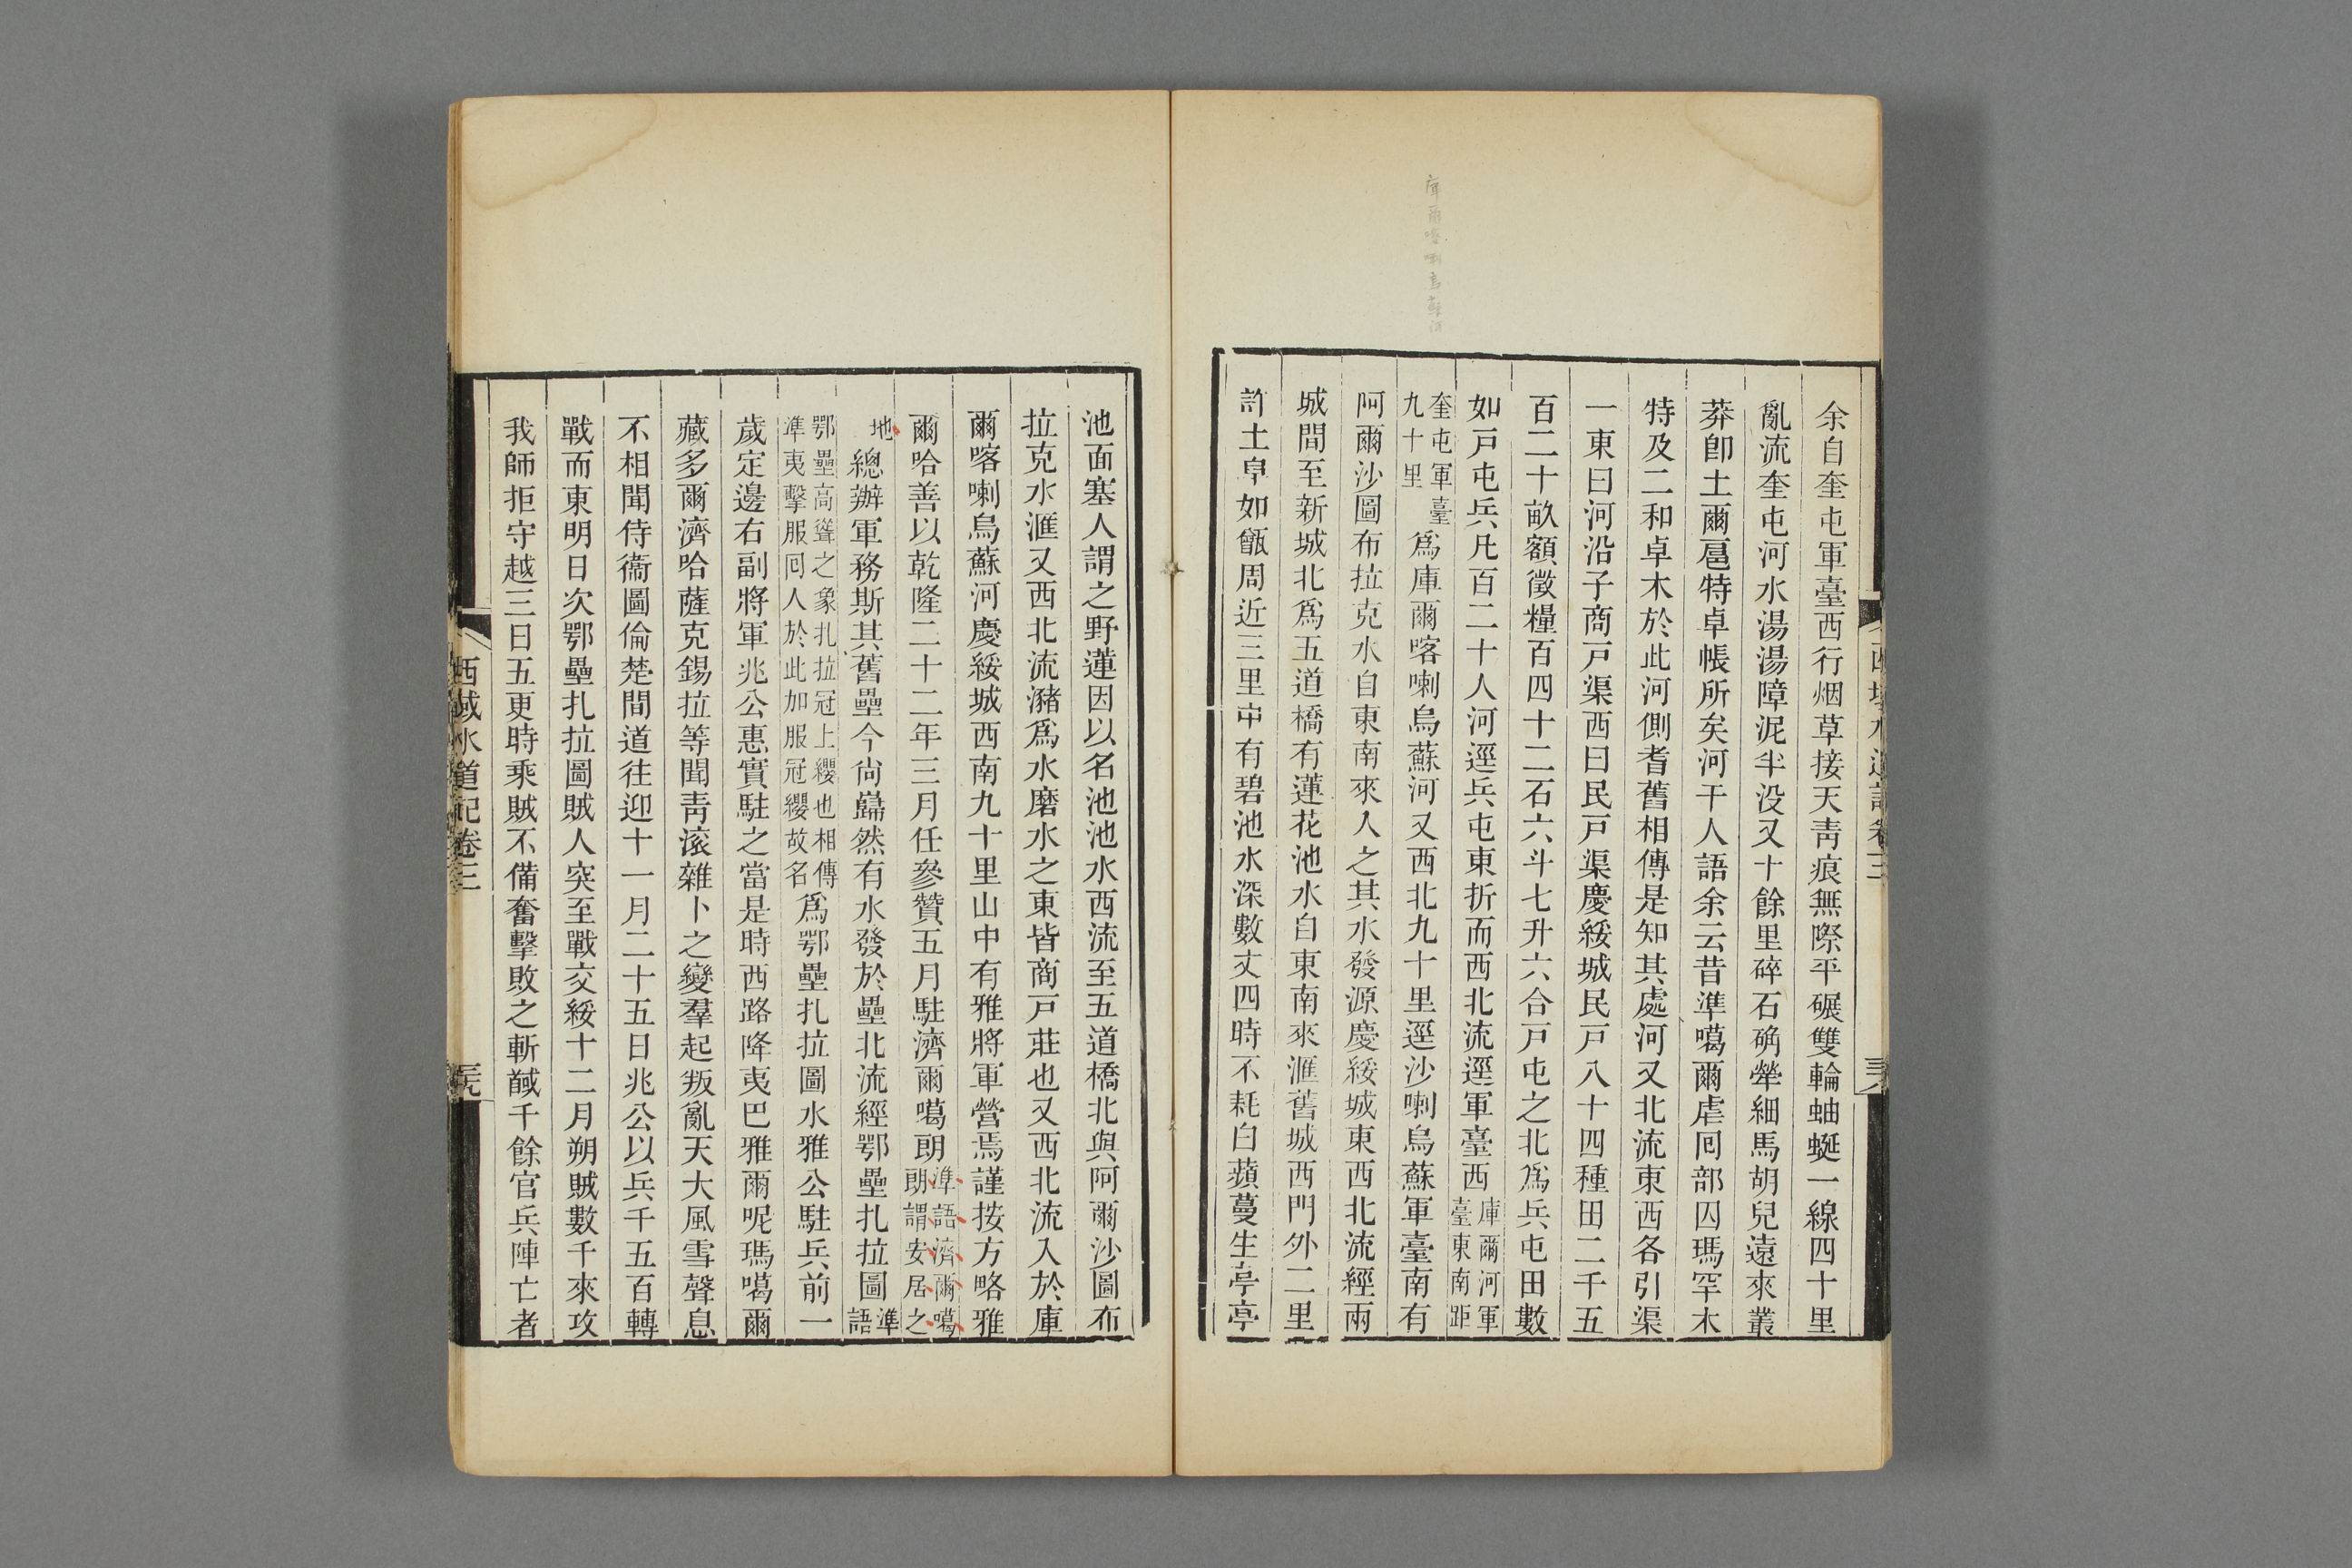 庫爾喀喇烏蘇河
余自奎屯軍臺西行烟草接天靑痕無際平碾雙輪蚰蜒一線四十里
亂流奎屯河水湯湯障泥半没又十餘里碎石确犖細馬胡兒遠來叢
莽卽土爾扈特卓帳所矣河干人語余云昔準噶爾虐囘部囚瑪罕木
特及二和卓木於此河側耆舊相傳是知其處河又北流東西各引渠
一東曰河沿子商戸渠西曰民戸渠慶綏城民戸八十四種田二千五
百二十畝額徵糧百四十二石六斗七升六合戸屯之北爲兵屯田數
如戸屯兵凡百二十人河逕兵屯東折而西北流逕軍臺西庫爾河軍臺東南距
奎屯軍臺九十里爲庫爾喀喇烏蘇河又西北九十里逕沙喇烏蘇軍臺南有
阿爾沙圖布拉克水自東南來入之其水發源慶綏城東西北流經兩
城間至新城北爲五道橋有蓮花池水自東南來滙舊城西門外二里
許土阜如甑周近三里中有碧池水深數丈四時不耗白蘋蔓生亭亭
西域水道記卷三
三八
池面塞人謂之野蓮因以名池池水西流至五道橋北與阿爾沙圖布
拉克水滙又西北流瀦爲水磨水之東皆商戸莊也又西北流入於庫
爾喀喇烏蘇河慶綏城西南九十里山中有雅將軍營焉謹按方略雅
爾哈善以乾隆二十二年三月任參贊五月駐濟爾噶朗準語濟爾噶朗謂安居之
地總辦軍務斯其舊壘今尙巋然有水發於壘北流經鄂壘扎拉圖準語
鄂壘高聳之象扎拉冠上纓也相傳準夷擊服囘人於此加服冠纓故名爲鄂壘扎拉圖水雅公駐兵前一
歲定邊右副將軍兆公惠實駐之當是時西路降夷巴雅爾呢瑪噶爾
藏多爾濟哈薩克錫拉等聞靑滚雜卜之變羣起叛亂天大風雪聲息
不相聞侍衞圖倫楚間道往迎十一月二十五日兆公以兵千五百轉
戰而東明日次鄂壘扎拉圖賊人突至戰交綏十二月朔賊數千來攻
我師拒守越三日五更時乘賊不備奮擊敗之斬馘千餘官兵陣亡者
西域水道記卷三
三九